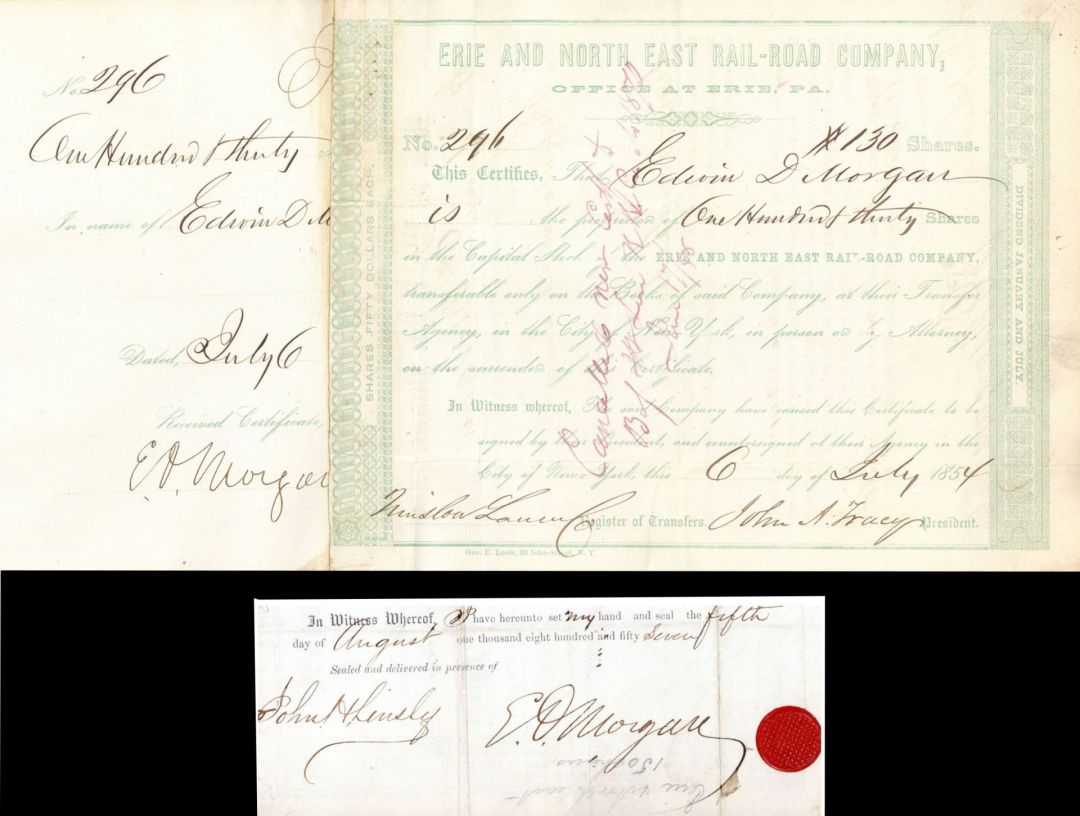 No. 296
One Hundred & thirty
In name of Edwin D M
Dated, July 6
Received Certificate,
E. D. Morgan
ERIE AND NORTH EAST RAIL-ROAD COMPANY,
OFFICE AT ERIE, PA.
No. 296 # 130 Shares.
This Certifies, That Edwin D Morgan
is the proprietor of One Hundred & thirty Shares
in the Capital Stock of the ERIE AND NORTH EAST RAIL-ROAD COMPANY,
transferable only on the Books of said Company, at their Transfer
Agency, in the City of New York, in person or by Attorney,
on the surrender of this Certificate.
In Witness whereof, The said Company have caused this Certificate to be
signed by the President, and countersigned at their Agency in the
City of New-York, this 6 day of July 1854
Winslow Lanier & Co Register of Transfers. John A. Tracy President.
Geo. E. Leefe, 93 John-Street, N. Y.
SHARES FIFTY DOLLARS EACH.
DIVIDEND JANUARY AND JULY
Cancelled new cert
In Witness Whereof, I have hereunto set my hand and seal the fifth
day of August one thousand eight hundred and fifty Seven
Sealed and delivered in presence of
John H Linsly
E. D. Morgan